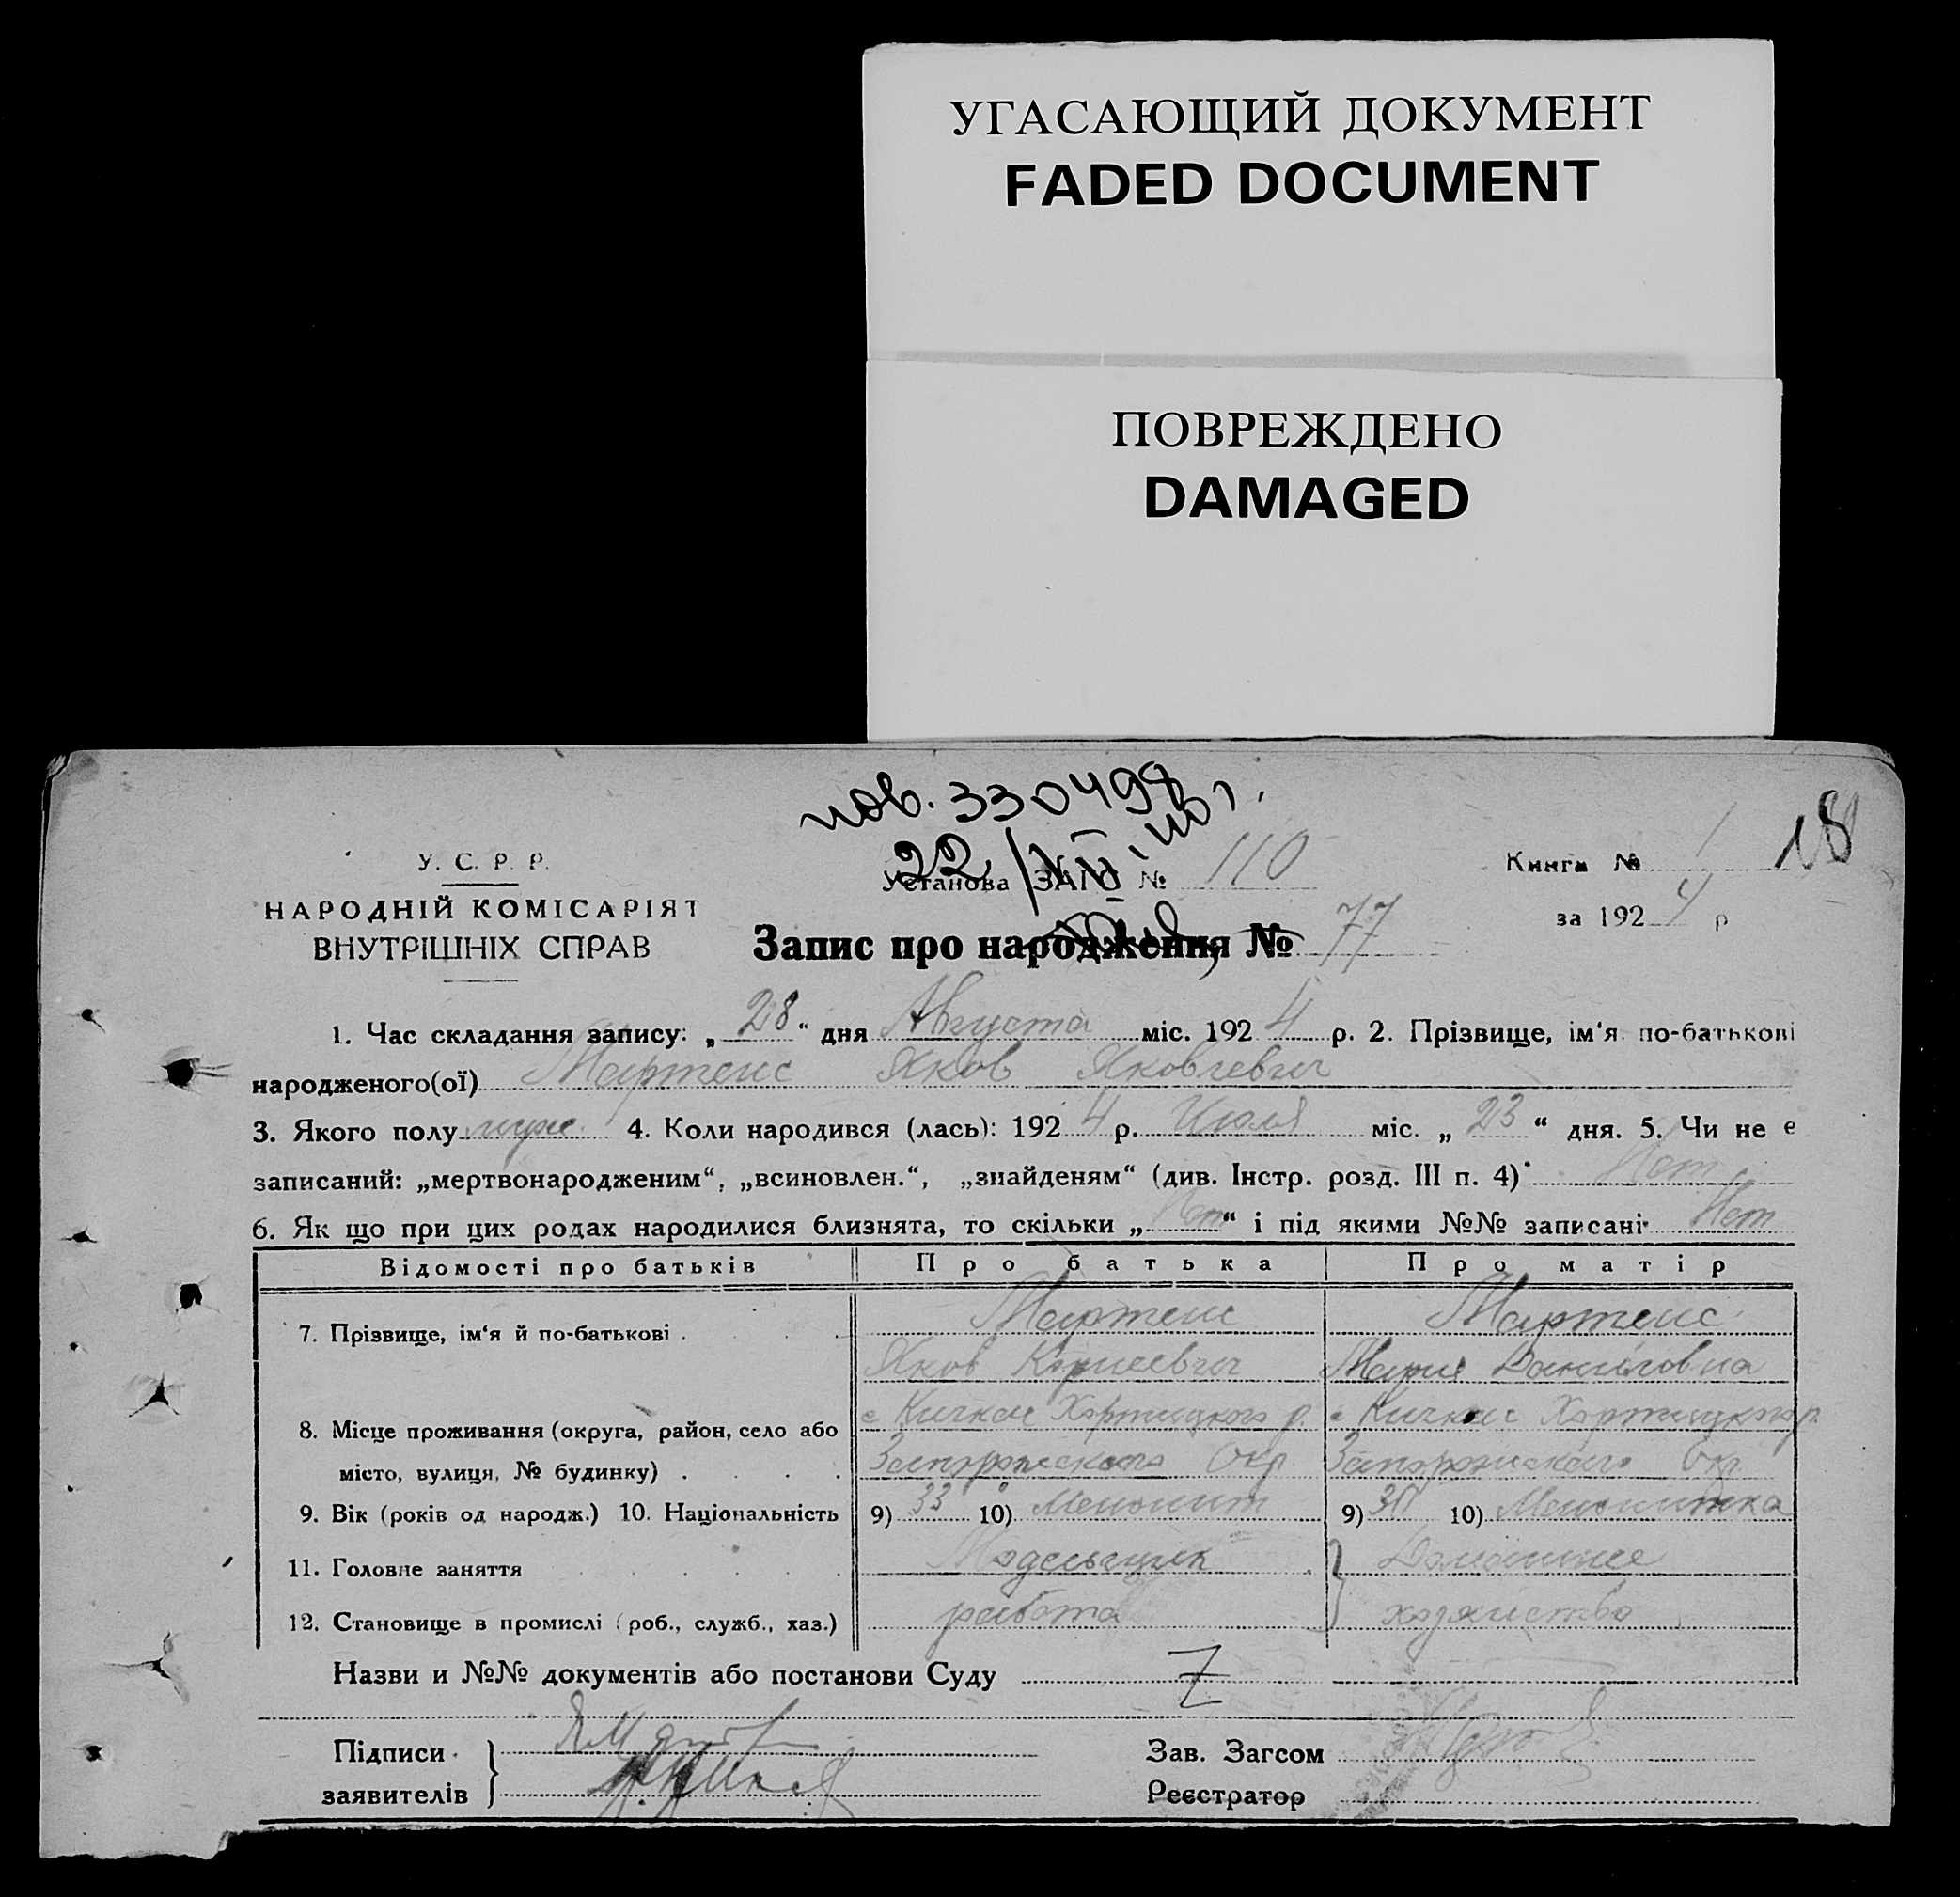 УГАСАЮЩИЙ ДОКУМЕНТ
FADED DOCUMENT
ПОВРЕЖДЕНО
DAMAGED
пов. 330498
22/XII
18
У. С. Р. Р.
НАРОДНІЙ КОМІСАРІЯТ
ВНУТРІШНІХ СПРАВ
Установа ЗАГС № 110
Книга № 1
за 192 4 р
Запис про народження № 77
1. Час складання запису: „ 28 “ дня Августа міс. 192 4 р. 2. Прізвище, ім‘я по-батькові
народженого(ої) Мартенс Яков Яковлевич
3. Якого полу муж. 4. Коли народився (лась): 192 4 р. Июля міс. „ 23 “ дня. 5. Чи не є
записаний: „мертвонародженим“, „всиновлен.“, „знайденям“ (див. Інстр. розд. III п. 4) Нет
6. Як що при цих родах народилися близнята, то скільки „ Нет “ і під якими №№ записані Нет
Відомості про батьків Про батька Про матір
7. Прізвище, ім‘я й по-батькові . Мартенс Мартенс
Яков Корнеевич Мария Даниловна
8. Місце проживання (округа, район, село або с Кичкас Хортицкого р. с Кичкас Хортицкого р.
місто, вулиця, № будинку) . Запорожского Окр. Запорожского Окр.
9. Вік (років од народж.) 10. Національність 9) 33 10) Менонит 9) 30 10) Менонитка
11. Головне заняття Модельщик Домашнее
12. Становище в промислі (роб., служб., хаз.) работа хозяйство
Назви и №№ документів або постанови Суду Z
Підписи
заявителів
Зав. Загсом
Реєстратор